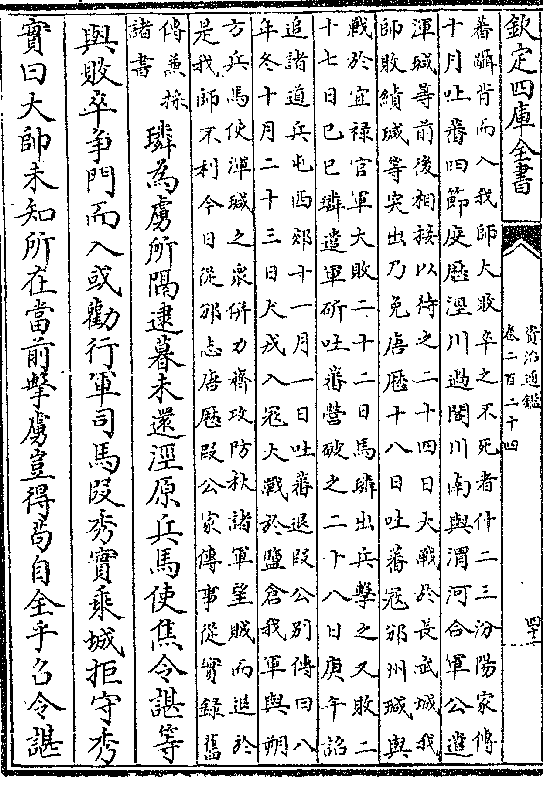 欽定四庫全書
資治通鑑
卷二百二十四
蕃躡背而入我師大敗卒之不死者什二三汾陽家傳
十月吐蕃四節度歷涇川過閣川南與渭河合軍公遣
渾瑊等前後相接以待之二十四日大戰於長武城我
師敗績瑊等突出乃免唐歷十八日吐蕃冦邠州瑊與
戰於宜禄官軍大敗二十二日馬璘出兵擊之又敗二
十七日己巳璘遣軍斫吐蕃營破之二十八日庚午詔
追諸道兵屯西郊十一月一日吐蕃退段公别傳曰八
年冬十月二十三日犬戎入冦大戰於鹽倉我軍與朔
方兵馬使渾瑊之衆併力齊攻防秋諸軍望賊而退於
是我師不利今日從邠志唐歷段公家傳事從實録舊
傳兼採
諸書
璘為虜所隔逮暮未還涇原兵馬使焦令諶等
與敗卒争門而入或勸行軍司馬段秀實乘城拒守秀
實曰大帥未知所在當前擊虜豈得苟自全乎召令諶